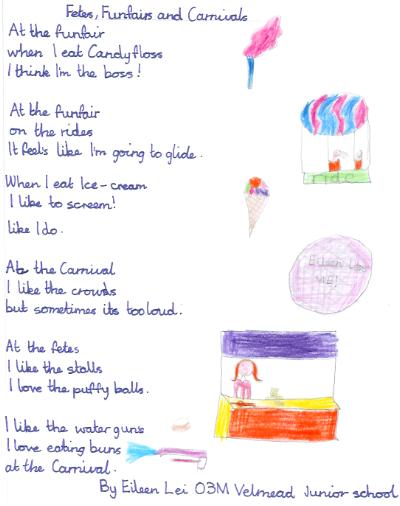 Fetes, Funfairs and Carnivals
At the funfair
when I eat Candyfloss
I think I'm the boss!
At the funfair
on the rides
It feel's like I'm going to glide.
ride
When I eat Ice-cream
I like to screem!
like I do.
At the Carnival
I like the crowds
but sometimes its too loud.
Eileen
ME!
At the fetes
I like the stalls
I love the puffy balls.
I like the water guns
I love eating buns
at the Carnival.
By Eileen Lei O3M Velmead Junior school